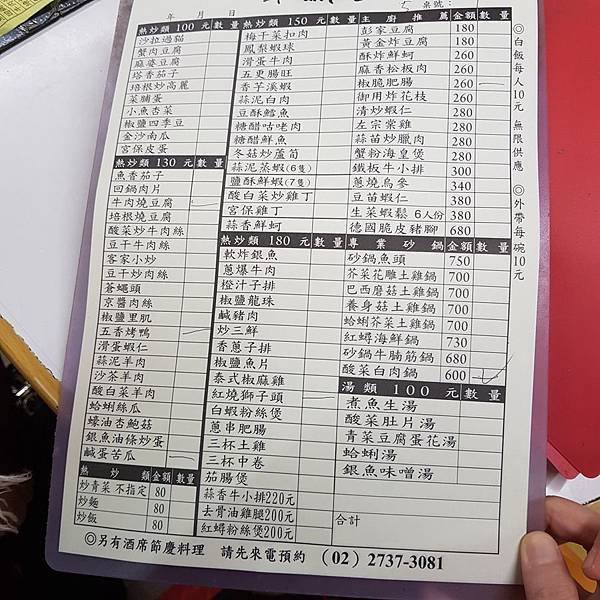 年 月 日
桌號：
熱炒類 100 元 數量
沙拉過貓
蟹肉豆腐
麻婆豆腐
塔香茄子
培根炒高麗
菜脯蛋
小魚杏菜
椒鹽四季豆
金沙南瓜
宮保皮蛋
熱炒類 130 元 數量
魚香茄子
回鍋肉片
牛肉燒豆腐
培根燒豆腐
酸菜炒牛肉絲
豆干牛肉絲
客家小炒
豆干炒肉絲
蒼蠅頭
京醬肉絲
椒鹽里肌
五香烤鴨
滑蛋蝦仁
蒜泥羊肉
沙茶羊肉
酸白菜羊肉
蛤蜊絲瓜
蠔油杏鮑菇
銀魚油條炒蛋
鹹蛋苦瓜
熱炒類 金額 數量
炒青菜 不指定 80
炒麵 80
炒飯 80
熱炒類 150 元 數量
梅干菜扣肉
鳳梨蝦球
滑蛋牛肉
五更腸旺
香芋溪蝦
蒜泥白肉
豆酥鱈魚
糖醋咕咾肉
糖醋鮮魚
冬菇炒蘆筍
蒜泥蒸蝦(6隻)
鹽酥鮮蝦(7隻)
酸白菜炒雞丁
宮保雞丁
蒜香鮮蚵
熱炒類 180 元 數量
軟炸銀魚
蔥爆牛肉
橙汁子排
椒鹽龍珠
鹹豬肉
炒三鮮
香蔥子排
椒鹽魚片
泰式椒麻雞
紅燒獅子頭
白蝦粉絲煲
蔥串肥腸
三杯土雞
三杯中卷
茄腸煲
蒜香牛小排220元
去骨油雞腿200元
紅蟳粉絲煲200元
主廚推薦 金額 數量
彭家豆腐 180
黃金炸豆腐 180
酥炸鮮蚵 260
麻香松板肉 260
椒脆肥腸 260
御用炸花枝 260
清炒蝦仁 280
左宗棠雞 280
蒜苗炒臘肉 280
蟹粉海皇煲 280
鐵板牛小排 300
蔥燒烏參 340
豆苗蝦仁 380
生菜蝦鬆 6人份 380
德國脆皮豬腳 680
專業砂鍋 金額 數量
砂鍋魚頭 750
芥菜花雕土雞鍋 700
巴西蘑菇土雞鍋 700
養身菇土雞鍋 700
蛤蜊芥菜土雞鍋 700
紅蟳海鮮鍋 730
砂鍋牛腩筋鍋 680
酸菜白肉鍋 600
湯類 100 元 數量
煮魚生湯
酸菜肚片湯
青菜豆腐蛋花湯
蛤蜊湯
銀魚味噌湯
合計
◎白飯每人10元 無限供應 ◎外帶每碗10元
◎另有酒席節慶料理 請先來電預約 (02) 2737-3081